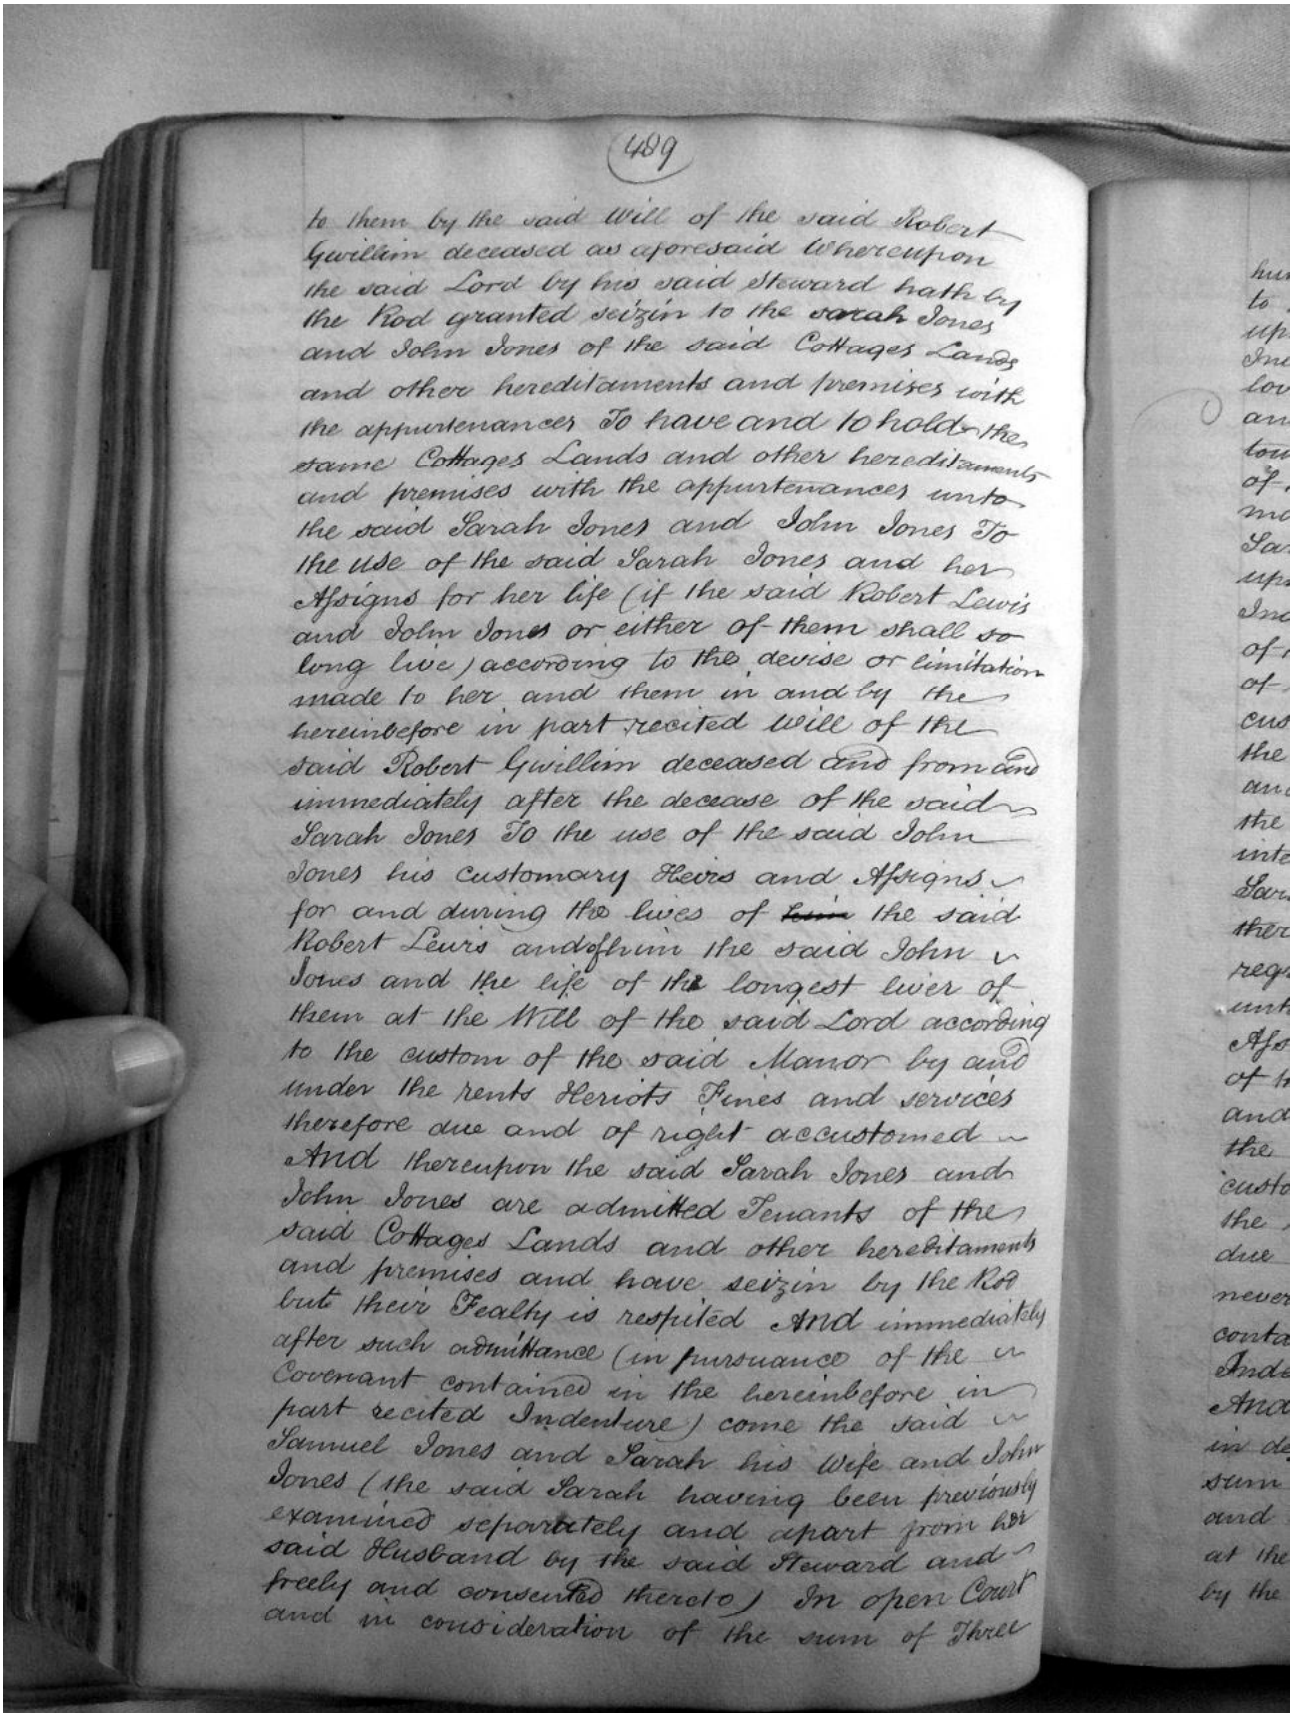 489
to them by the said Will of the said Robert
Gwillim deceased as aforesaid Whereupon
the said Lord by his said Steward hath by
the Rod granted seizin to the sarah Jones
and John Jones of the said Cottages Lands
and other hereditaments and premises with
the appurtenances To have and to hold the
same Cottages Lands and other hereditaments
and premises with the appurtenances unto
the said Sarah Jones and John Jones To
the use of the said Sarah Jones and her
Assigns for her life (if the said Robert Lewis
and John Jones or either of them shall so
long live) according to the devise or limitation
made to her and them in and by the
hereinbefore in part recited Will of the
said Robert Gwillim deceased and from and
immediately after the decease of the said
Sarah Jones To the use of the said John
Jones his customary Heirs and Assigns
for and during the lives of him the said
Robert Lewis and of him the said John
Jones and the life of the longest liver of
them at the Will of the said Lord according
to the custom of the said Manor by and
under the rents Heriots Fines and services
therefore due and of right accustomed
And thereupon the said Sarah Jones and
John Jones are admitted Tenants of the
said Cottages Lands and other hereditaments
and premises and have seizin by the Rod
but their Fealty is respited And immediately
after such admittance (in pursuance of the
Covenant contained in the hereinbefore in
part recited Indenture) come the said
Samuel Jones and Sarah his Wife and John
Jones (the said Sarah having been previously
examined separately and apart from her
said Husband by the said Steward and
freely and consented thereto) In open Court
and in consideration of the sum of Three
to
the
the
Sar
the
of
and
the
the
due
never
And
sum
and
at the
by the